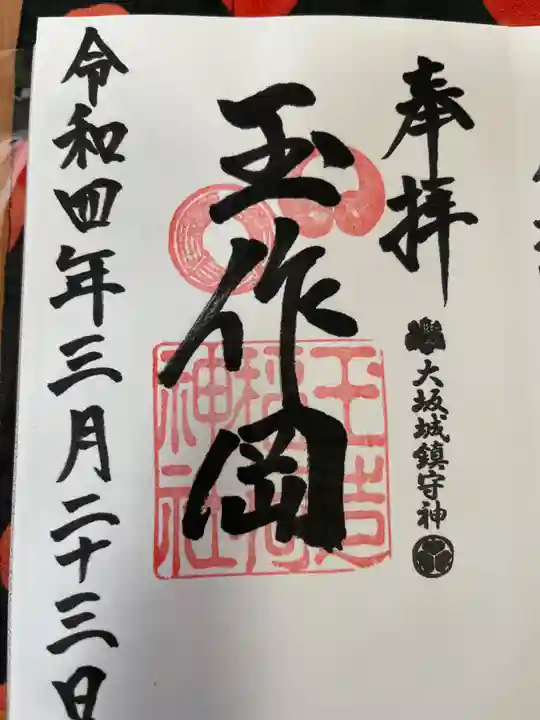 奉拝
大坂城鎮守神
玉作岡
玉造稲荷神社
令和四年三月二十三日